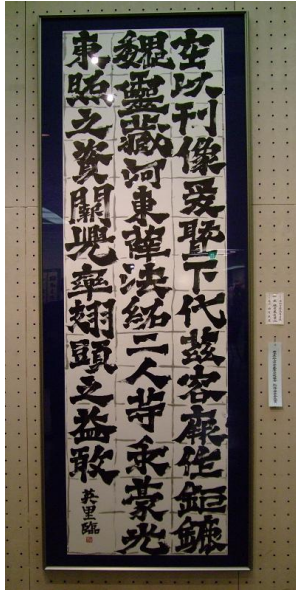 空以刊像爰暨下代茲容厥作鉅鏕
魏靈藏河東薛法紹二人等求豪光
東照之資闕兜率翅頭之益敢
英里臨